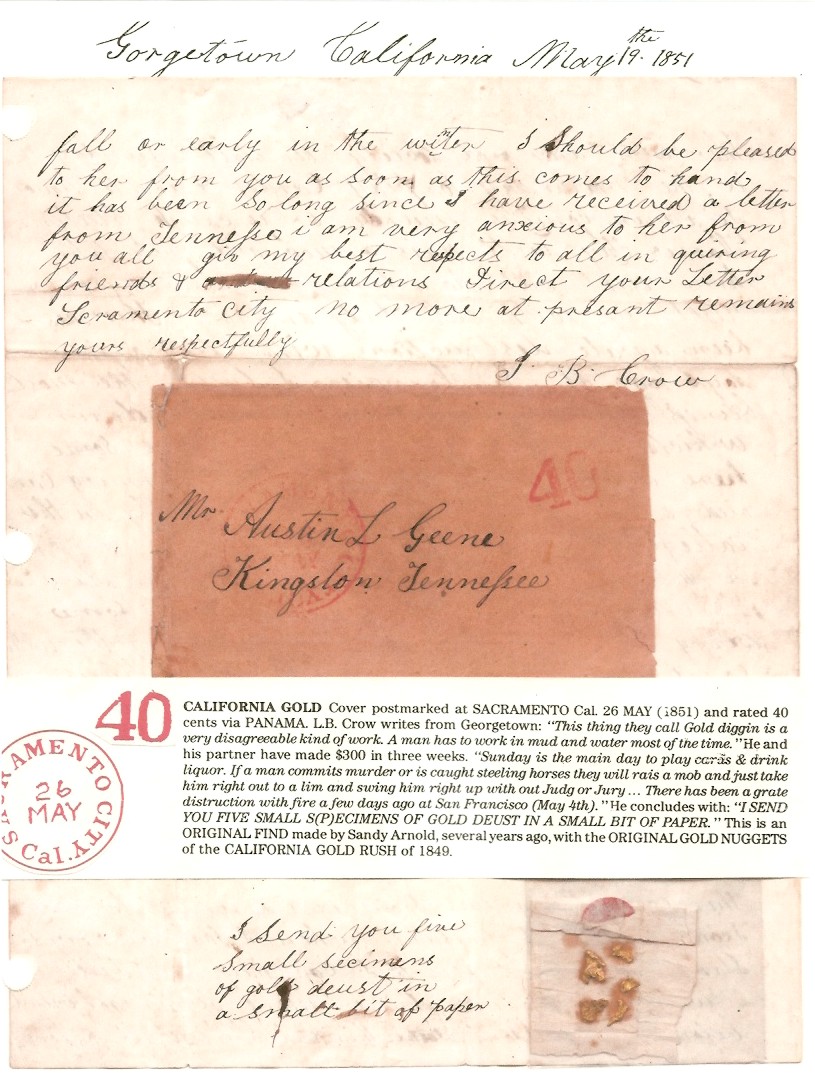 Gorgetown California May 19the 1851
fall or early in the winter I should be pleased
to her from you as soon as this comes to hand
it has been so long since I have received a letter
from Tennessee i am very anxious to her from
you all giv my best respects to all in quiring
friends & relations Direct your Letter
Scramento City no more at present remains
yours respectfully
S. B. Crow
40
Mr. Austin L Geene
Kingston Tennessee
40
CALIFORNIA GOLD Cover postmarked at SACRAMENTO Cal. 26 MAY (1851) and rated 40
cents via PANAMA. L.B. Crow writes from Georgetown: "This thing they call Gold diggin is a
very disagreeable kind of work. A man has to work in mud and water most of the time." He and
his partner have made $300 in three weeks. "Sunday is the main day to play cards & drink
liquor. If a man commits murder or is caught steeling horses they will rais a mob and just take
him right out to a lim and swing him right up with out Judg or Jury... There has been a grate
distruction with fire a few days ago at San Francisco (May 4th)." He concludes with: "I SEND
YOU FIVE SMALL S(P)ECIMENS OF GOLD DEUST IN A SMALL BIT OF PAPER." This is an
ORIGINAL FIND made by Sandy Arnold, several years ago, with the ORIGINAL GOLD NUGGETS
of the CALIFORNIA GOLD RUSH of 1849.
SACRAMENTO CITY
26
MAY
Cal.
I send you five
small secimens
of gold deust in
a small bit of paper